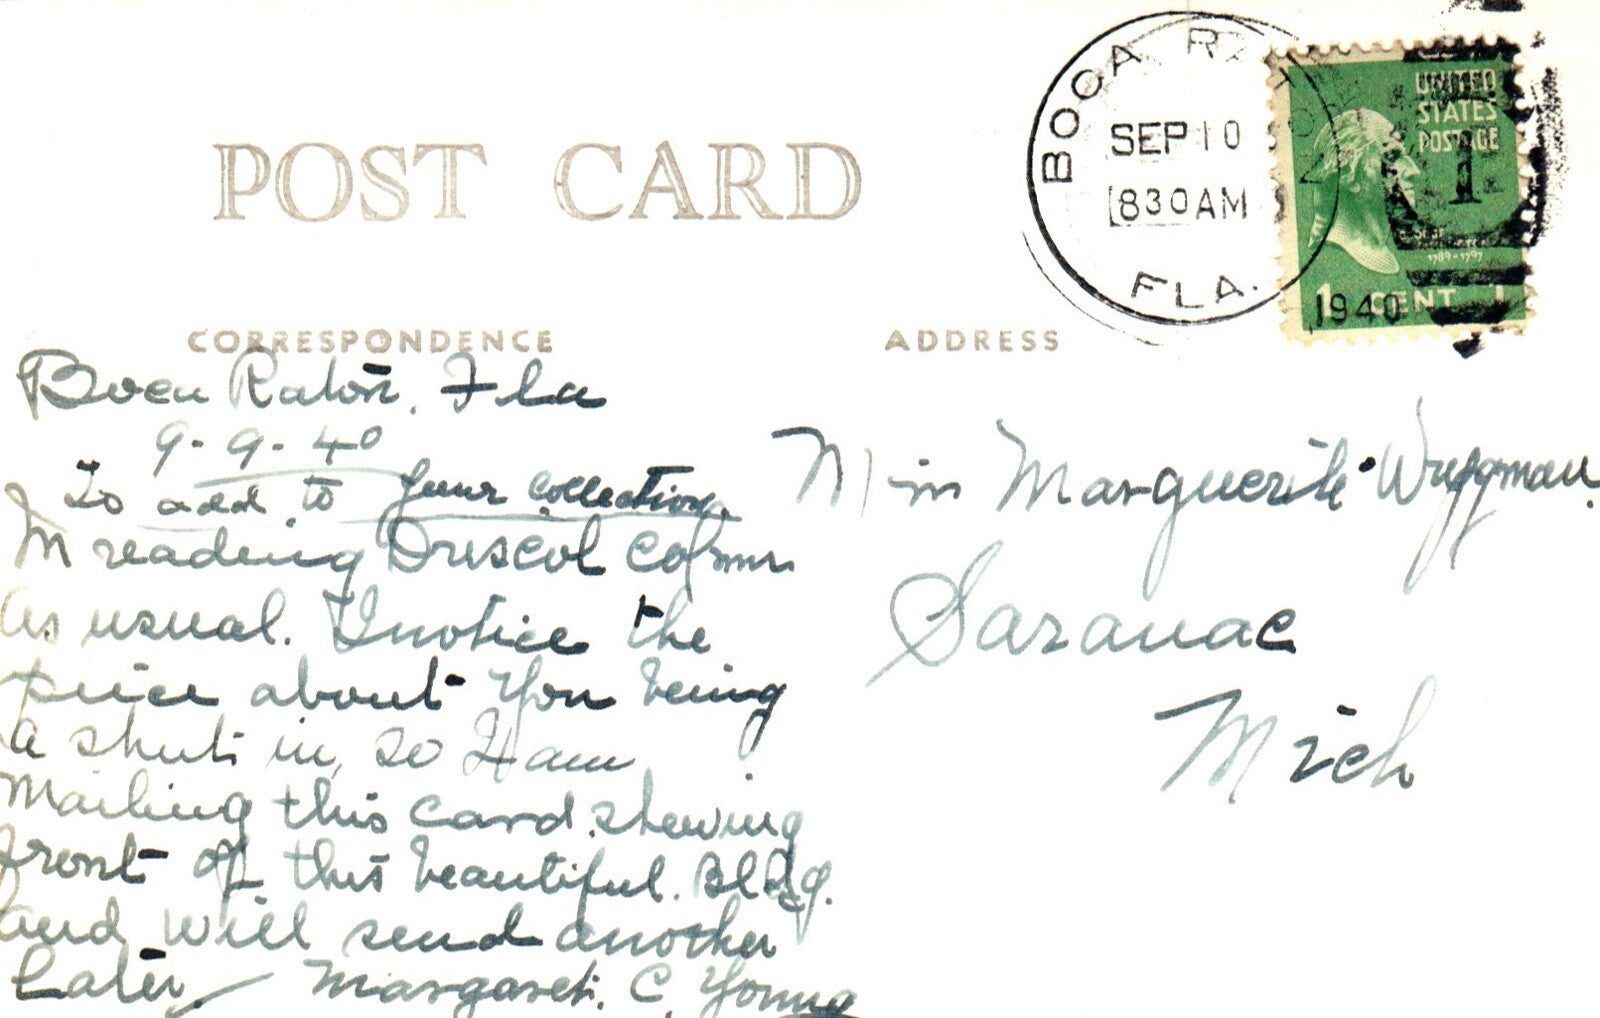 POST CARD
BOCA RATON
SEP 10
830AM
FLA.
1940
UNITED
STATES
POSTAGE
1
1789-1797
1 CENT 1
CORRESPONDENCE
ADDRESS
Boca Raton, Fla
9-9-40
To add to your collection.
In reading Driscol Colmn.
as usual. I notice the
piece about you being
a shut in, so I am
Mailing this card, showing
front of this beautiful. Bldg.
and will send another
Later. Margaret. C. Young
Miss Marguerite Wrygman.
Saranac
Mich